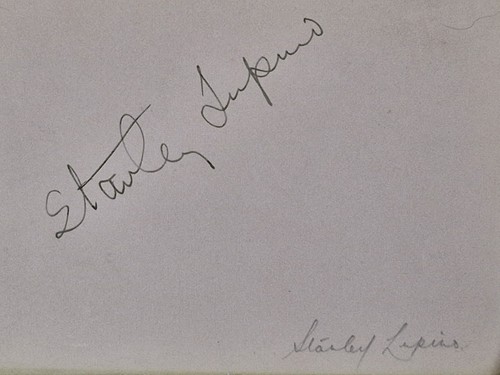 Stanley Lupino
Stanley Lupino